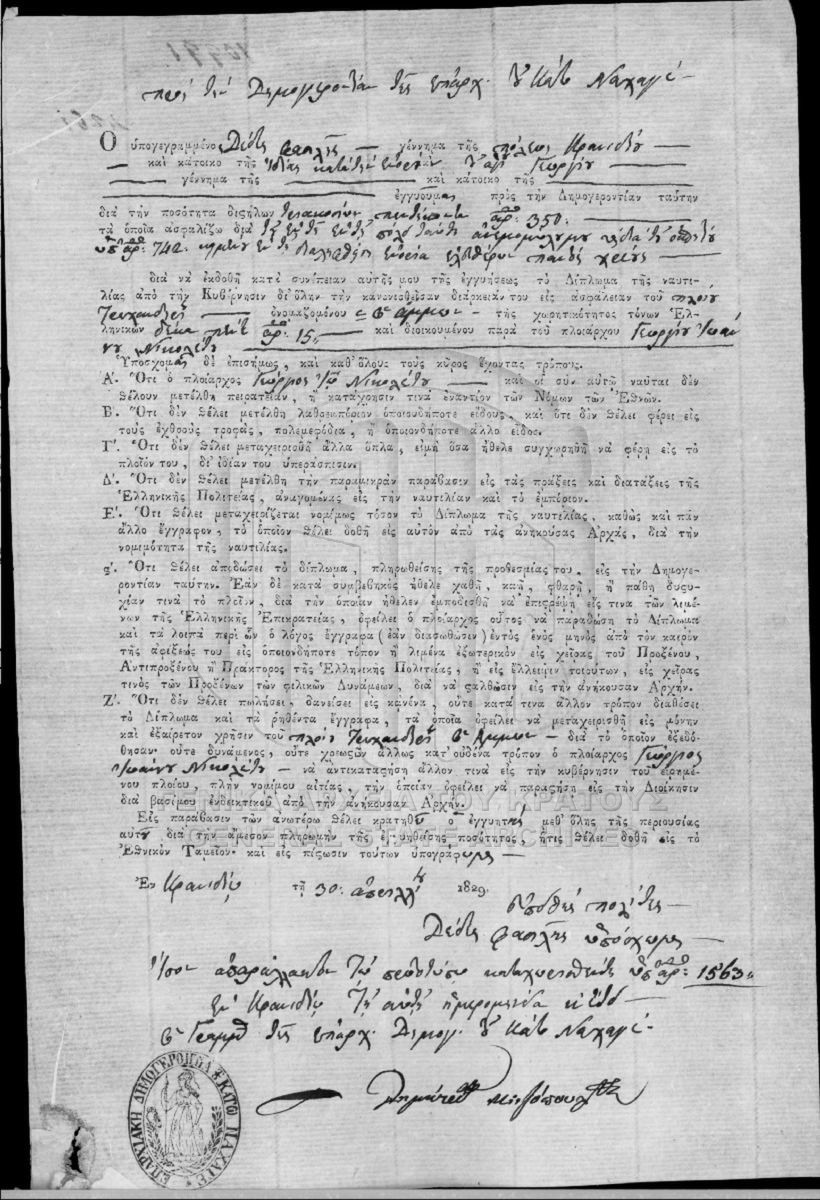 πρὸς τὴν Δημογεροντίαν τῆς ἐπαρχ. Κάτω Ναχαγέ
Ὁ ὑπογεγραμμένος γέννημα τῆς πόλεως Κρανιδίου
καὶ κάτοικο τῆς ἰδίας Γεωργίου
γέννημα τῆς καὶ κάτοικο τῆς
ἐγγυοῦμαι πρὸς τὴν Δημογεροντίαν ταύτην
διὰ τὴν ποσότητα διςήλων τριακοσίων πεντήκοντα ἀρ: 350
τὰ ὁποῖα ἀσφαλίζω διὰ
ὑπ' ἀρ: 742
διὰ νὰ ἐκδοθῇ κατὰ συνέπειαν αὐτῆς μου τῆς ἐγγυήσεως τὸ Δίπλωμα τῆς ναυτι-
λίας ἀπὸ τὴν Κυβέρνησιν δι' ὅλην τὴν κανονισθεῖσαν διάρκειάν του εἰς ἀσφάλειαν τοῦ πλοίου
ὀνομαζομένου τῆς χωρητικότητος τόνων Ἑλ-
ληνικῶν δέκα πέντε ἀρ: 15 καὶ διοικουμένου παρὰ τοῦ πλοιάρχου Γεωργίου Ἰωάν
νου Νικολέτου
Ὑπόσχομαι δὲ ἐπισήμως, καὶ καθ' ὅλους τοὺς κῦρος ἔχοντας τρόπους.
Α΄. Ὅτι ὁ πλοίαρχος Γεώργιος Ἰω Νικολέτου καὶ οἱ σὺν αὐτῷ ναῦται δὲν
θέλουν μετέλθῃ πειρατείαν, ἢ κατάχρησιν τινὰ ἐναντίον τῶν Νόμων τῶν Ἐθνῶν.
Β΄. Ὅτι δὲν θέλει μετέλθῃ λαθρεμπόριον ὁποιουδήποτε εἴδους, καὶ ὅτι δὲν θέλει φέρει εἰς
τοὺς ἐχθροὺς τροφὰς, πολεμεφόδια, ἢ ὁποιονδήποτε ἄλλο εἶδος.
Γ΄. Ὅτι δὲν θέλει μεταχειρισθῆ ἄλλα ὅπλα, εἰμὴ ὅσα ἤθελε συγχωρηθῆ νὰ φέρῃ εἰς τὸ
πλοῖόν του, δι' ἰδίαν του ὑπεράσπισιν.
Δ΄. Ὅτι δὲν θέλει μετέλθῃ τὴν παραμικρὰν παράβασιν εἰς τὰς πράξεις καὶ διατάξεις τῆς
Ἑλληνικῆς Πολιτείας, ἀναγομένας εἰς τὴν ναυτιλίαν καὶ τὸ ἐμπόριον.
Ε΄. Ὅτι θέλει μεταχειρίζεται νομίμως τόσον τὸ Δίπλωμα τῆς ναυτιλίας, καθὼς καὶ πᾶν
ἄλλο ἔγγραφον, τὸ ὁποῖον θέλει δοθῆ εἰς αὐτὸν ἀπὸ τὰς ἀνηκούσας Ἀρχὰς, διὰ τὴν
νομιμότητα τῆς ναυτιλίας.
ς΄. Ὅτι θέλει ἀποδώσει τὸ δίπλωμα, πληρωθείσης τῆς προθεσμίας του, εἰς τὴν Δημογε-
ροντίαν ταύτην. Ἐὰν δὲ κατὰ συμβεβηκὸς ἤθελε χαθῆ, καῆ, φθαρῆ, ἢ πάθῃ δυςυ-
χίαν τινὰ τὸ πλοῖον, διὰ τὴν ὁποίαν ἤθελεν ἐμποδισθῆ νὰ ἐπιςρέψῃ εἴς τινα τῶν λιμέ-
νων τῆς Ἑλληνικῆς Ἐπικρατείας, ὀφείλει ὁ πλοίαρχος οὗτος νὰ παραδώσῃ τὸ Δίπλωμα
καὶ τὰ λοιπὰ περὶ ὧν ὁ λόγος ἔγγραφα (ἐὰν διασωθῶσιν) ἐντὸς ἑνὸς μηνὸς ἀπὸ τὸν καιρὸν
τῆς ἀφίξεώς του εἰς ὁποιονδήποτε τόπον ἢ λιμένα ἐξωτερικὸν εἰς χεῖρας τοῦ Προξένου,
Ἀντιπροξένου ἢ Πράκτορος τῆς Ἑλληνικῆς Πολιτείας, ἢ εἰς ἔλλειψιν τοιούτων, εἰς χεῖρας
τινὸς τῶν Προξένων τῶν φιλικῶν Δυνάμεων, διὰ νὰ ςαλθῶσιν εἰς τὴν ἀνήκουσαν Ἀρχήν.
Ζ΄. Ὅτι δὲν θέλει πωλήσει, δανείσει εἰς κανένα, οὔτε κατά τινα ἄλλον τρόπον διαθέσει
τὸ Δίπλωμα καὶ τὰ ῥηθέντα ἔγγραφα, τὰ ὁποῖα ὀφείλει νὰ μεταχειρισθῆ εἰς μόνην
καὶ ἐξαίρετον χρῆσιν τοῦ πλοίου διὰ τὸ ὁποῖον ἐξεδό-
θησαν· οὔτε δυνάμενος, οὔτε χρεωςῶν ἄλλως κατ' οὐδένα τρόπον ὁ πλοίαρχος Γεώργιος
Ἰωάννου Νικολέτου νὰ ἀντικαταςήσῃ ἄλλον τινὰ εἰς τὴν κυβέρνησιν τοῦ εἰρημέ-
νου πλοίου, πλὴν νομίμου αἰτίας, τὴν ὁποίαν ὀφείλει νὰ παραςήσῃ εἰς τὴν Διοίκησιν
διὰ βασίμου ἐνδεικτικοῦ ἀπὸ τὴν ἀνήκουσαν Ἀρχήν.
Εἰς παράβασιν τῶν ἀνωτέρω θέλει κρατηθῆ ὁ ἐγγυητὴς μεθ' ὅλης τῆς περιουσίας
αὐτοῦ διὰ τὴν ἄμεσον πληρωμὴν τῆς ἐῤῥηθείσης ποσότητος, ἥτις θέλει δοθῆ εἰς τὸ
Ἐθνικὸν Ταμεῖον· καὶ εἰς πίςωσιν τούτων ὑπογράφομαι
Ἐν Κρανιδίῳ τῇ 30 ἀπριλλίου 1829.
ὑπόσχομαι
Ἴσον ἀπαράλλακτον τῷ πρωτοτύπῳ καταχωρισθέντι ὑπ' ἀρ: 1563
ἐν Κρανιδίῳ τῇ αὐτῇ ἡμερομηνίᾳ
ὁ Γραμμ τῆς ἐπαρχ. Δημογ. Κάτω Ναχαγέ
ΕΠΑΡΧΙΑΚΗ ΔΗΜΟΓΕΡΟΝΤΙΑ ΚΑΤΩ ΝΑΧΑΓΕ
ΓΕΝΙΚΑ ΑΡΧΕΙΑ ΤΟΥ ΚΡΑΤΟΥΣ
GENERAL STATE ARCHIVES